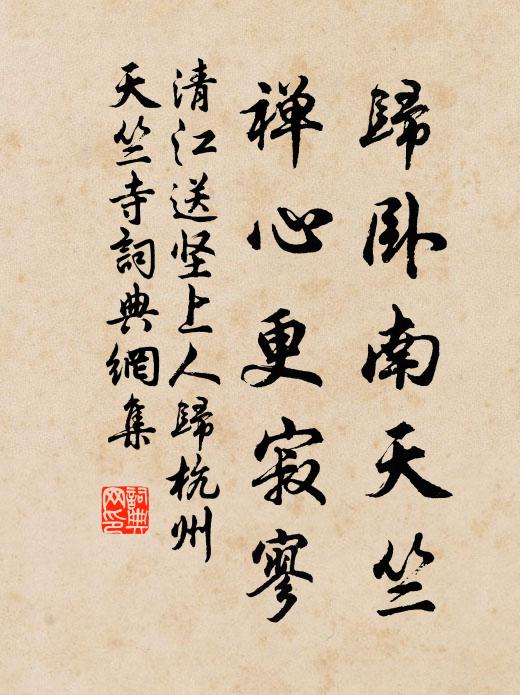 歸卧南天竺
禅心更寂寥
清江送坚上人歸杭州
天竺寺詞典網集
詞典網印